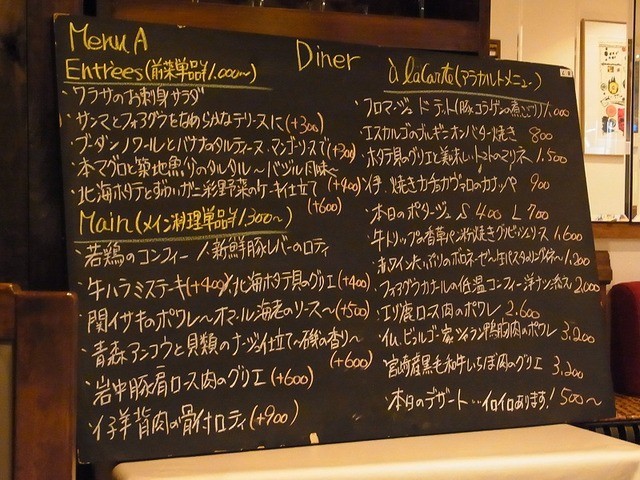 Menu A
Diner
Entrées (前菜単品¥1,000〜)
・ワラサのお刺身サラダ
・サンマとフォアグラをなめらかなテリーヌに (+300)
・ブーダンノワールとバナナのタルティーヌ、マンゴリーズで (+300)
・本マグロと築地魚介のタルタル〜バジル風味〜
(+400)
・北海ホタテとずわいガニ彩野菜のケーキ仕立て
(+600)
Main (メイン料理単品¥1,300〜)
・若鶏のコンフィー / 新鮮豚レバーのロティ
・牛ハラミステーキ(+400)/北海ホタテ貝のグリエ(+400)
・関イサキのポワレ〜オマール海老のソース〜(+500)
・青森アンコウと貝類のナージュ仕立て〜磯の香り〜
(+600)
・岩中豚肩ロース肉のグリエ (+600)
・仔羊背肉の骨付ロティ (+900)
à la Carte (アラカルトメニュー)
・フロマージュ ド テット(豚コラーゲンの煮こごり) 1,000
・エスカルゴのブルギニオンバター焼き 800
・ホタテ貝のグリエと美味しいトマトのマリネ 1,500
・伊 焼きカチョカヴァロのカナッペ 900
・本日のポタージュ S 400 L 700
・牛トリップの香草パン粉焼き グリビッシュソース 1,600
・赤ワインたっぷりのボロネーゼ 1,200
・フォアグラカナールの低温コンフィー 洋ナシ添え 2,000
・エゾ鹿ロース肉のポワレ 2,600
・仏、ビュルゴー家シャラン鴨胸肉のポワレ 3,200
・宮崎産黒毛和牛いちぼ肉のグリエ 3,200
・本日のデザート…イロイロあります! 500〜